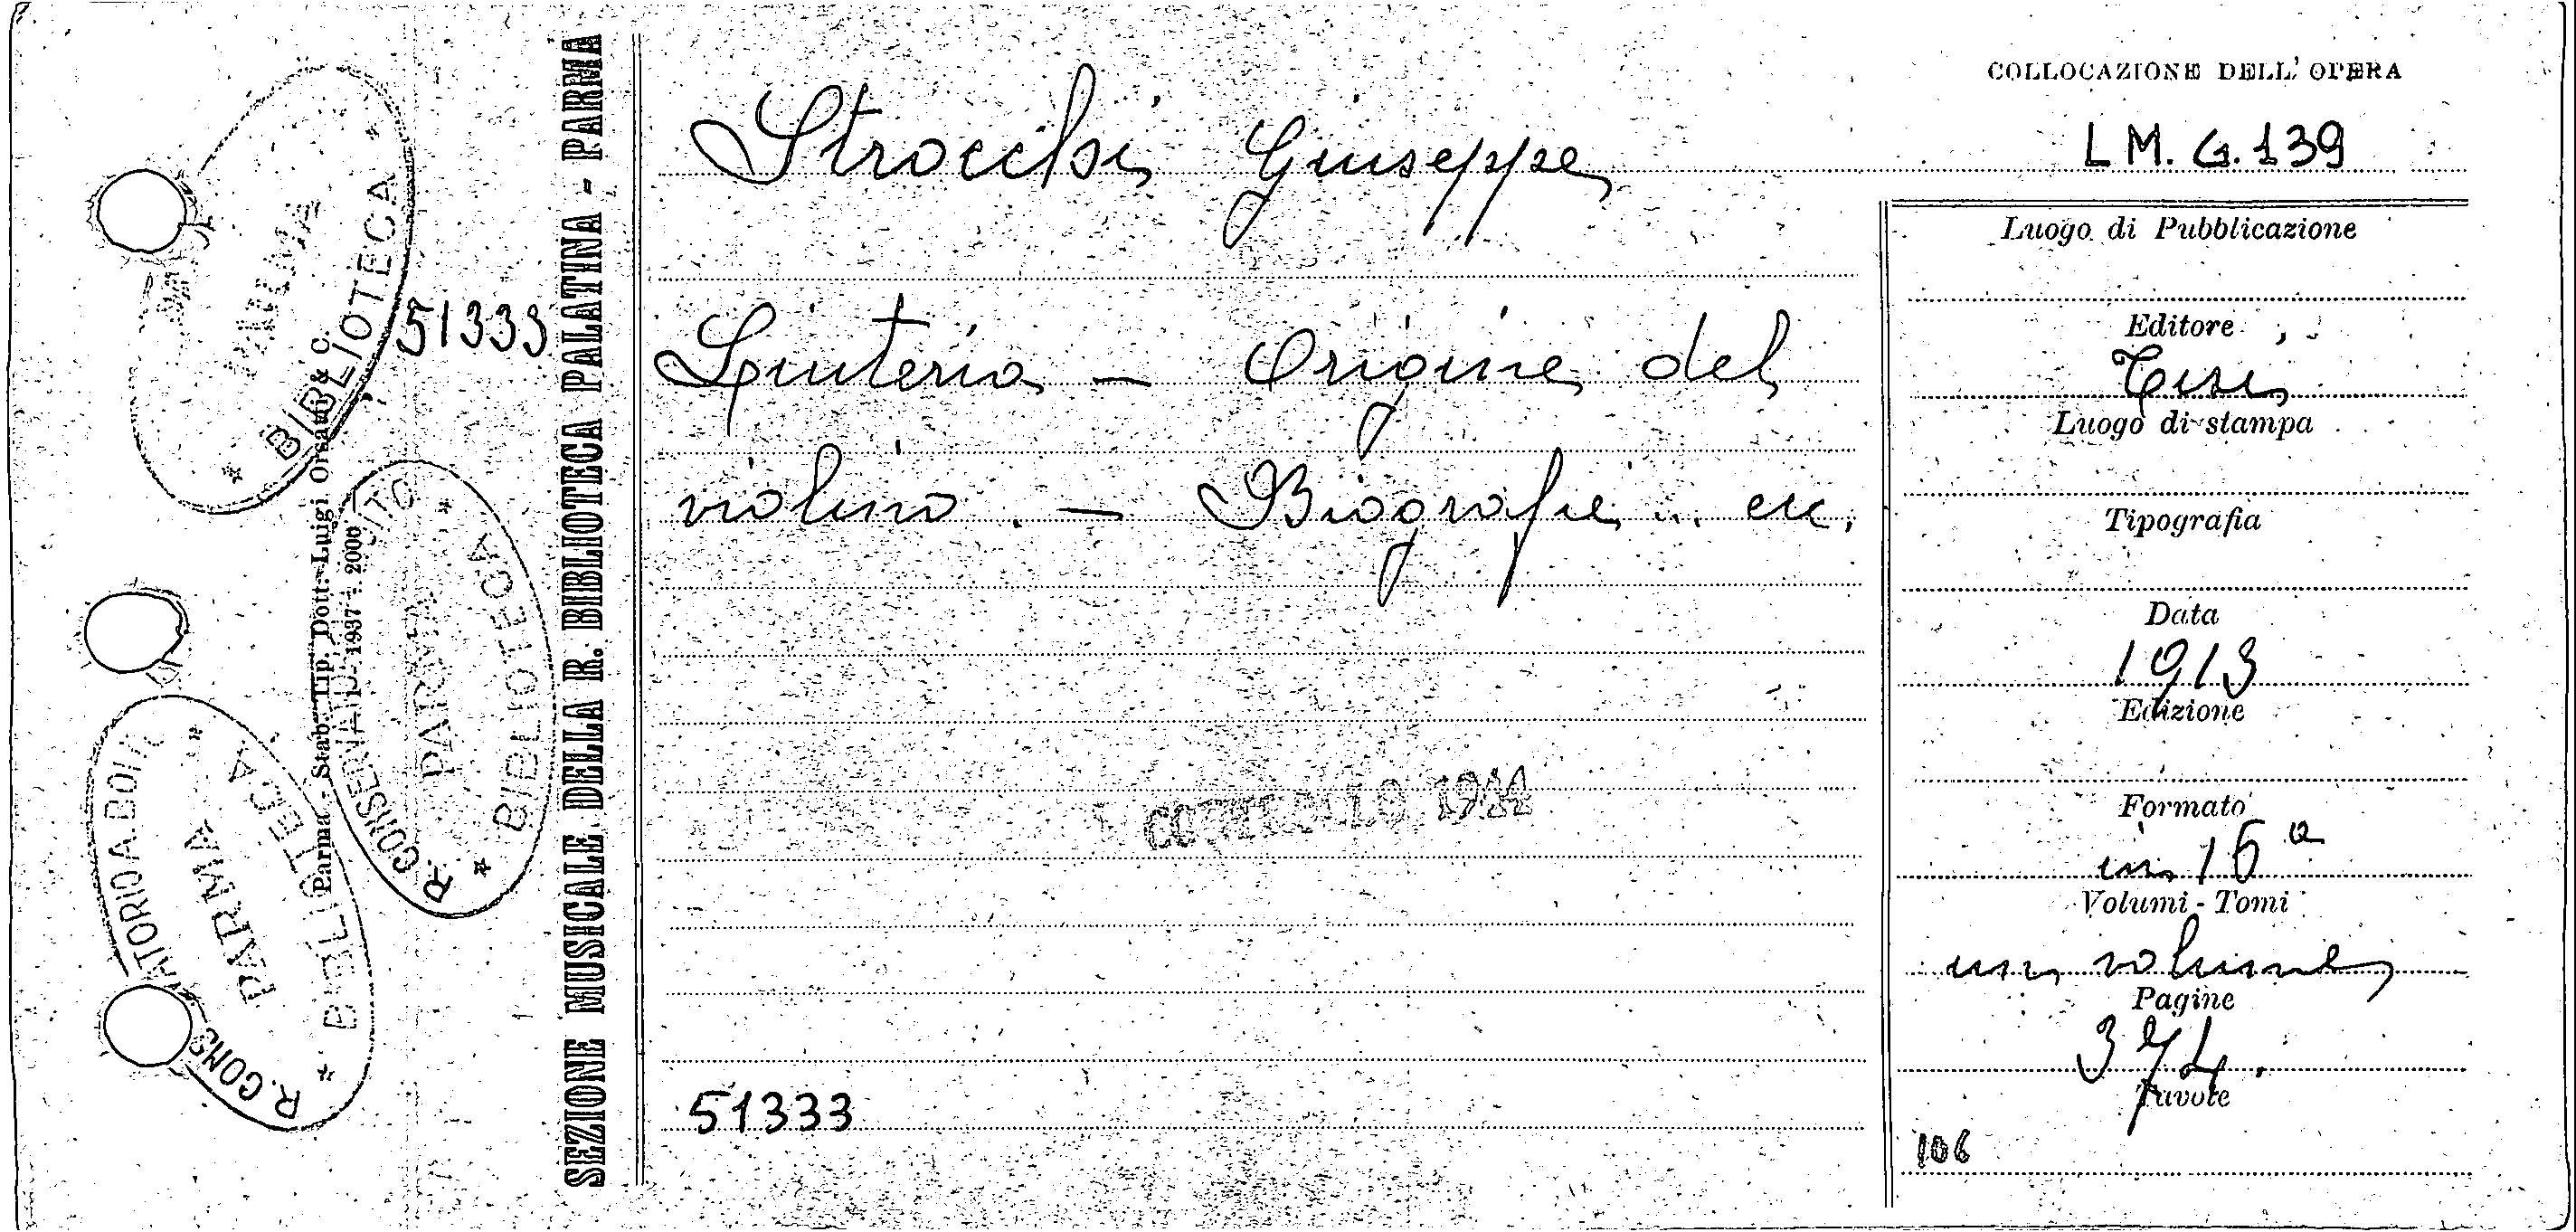 COLLOCAZIONE DELL' OPERA
LM. G. 139
Strocchi Giuseppe
Liuteria – Origine del
violino. – Biografie.. ecc.
51333
Luogo di Pubblicazione
Editore
Luogo di stampa
Tipografia
Data
1913
Edizione
Formato
in 16º
Volumi - Tomi
un volume
Pagine
374.
Tavole
106
SEZIONE MUSICALE DELLA R. BIBLIOTECA PALATINA - PARMA
51333
Parma - Stab. Tip. Dott. Luigi Orsatti & C.
1937 - 2000
PARMA
* BIBLIOTECA *
R. CONSERVATORIO
PARMA
* BIBLIOTECA *
R. CONSERVATORIO A. BOITO
PARMA
* BIBLIOTECA *
CONTROLLO 19